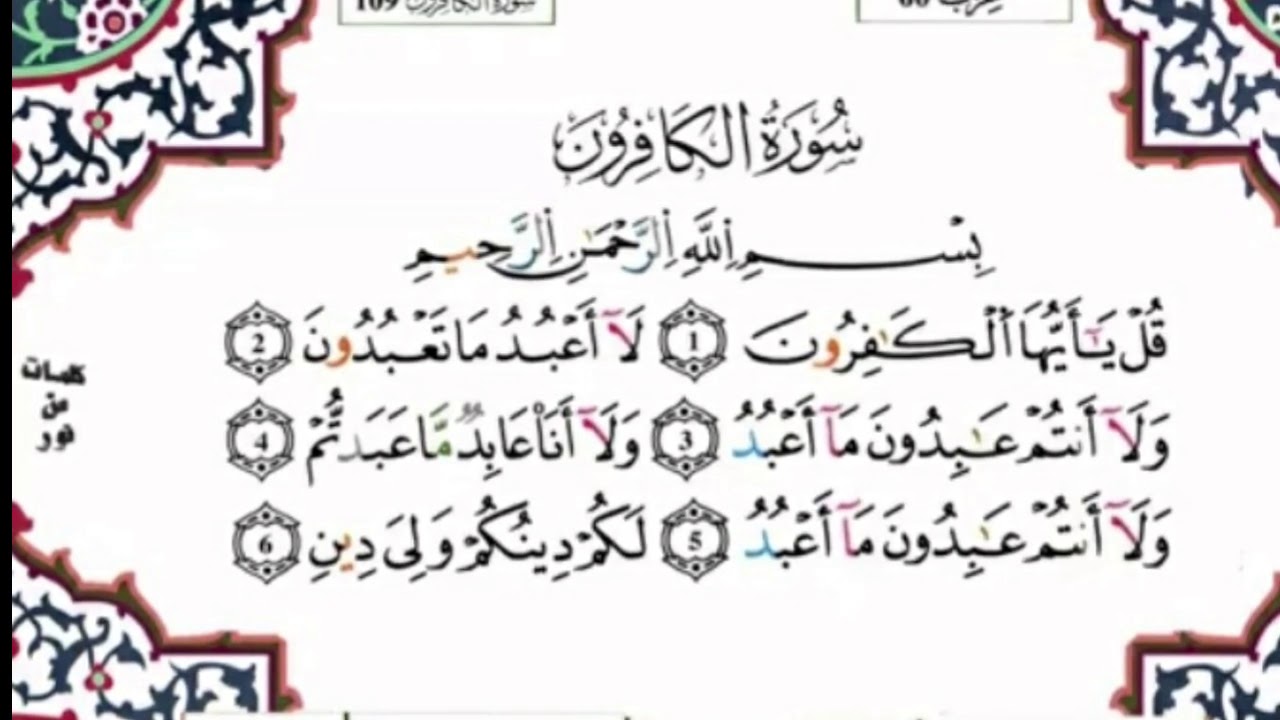 سورة الكافرون 109
حزب 60
سُورَةُ الكَافِرُونَ
بِسْمِ اِللَّهِ اِلرَّحْمَٰنِ اِلرَّحِيمِ
قُلْ يَٰٓأَيُّهَا اَلْكَٰفِرُونَ 1 لَآ أَعْبُدُ مَا تَعْبُدُونَ 2
وَلَآ أَنتُمْ عَٰبِدُونَ مَآ أَعْبُدُ 3 وَلَآ أَنَا۠ عَابِدٌ مَّا عَبَدتُّمْ 4
وَلَآ أَنتُمْ عَٰبِدُونَ مَآ أَعْبُدُ 5 لَكُمْ دِينُكُمْ وَلِىَ دِينِ 6
كلمات
من
نور